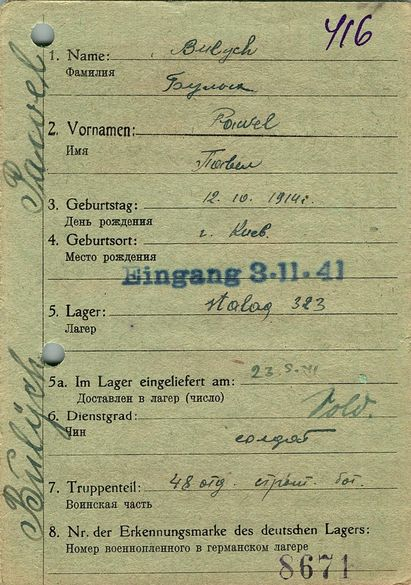 416
1. Name: Bulych
Фамилия
Булыч
2. Vornamen: Pawel
Имя
Павел
3. Geburtstag: 12. 10. 1914г.
День рождения
4. Geburtsort: г. Киев
Место рождения
Eingang 3.11.41
5. Lager: Stalag 323
Лагер
5a. Im Lager eingeliefert am: 23
Доставлен в лагер (число)
6. Dienstgrad: Sold.
Чин
солдат
7. Truppenteil: 48 отд. строит. бат.
Воинская часть
8. Nr. der Erkennungsmarke des deutschen Lagers:
Номер военнопленного в германском лагере
8671
Bulych Pawel